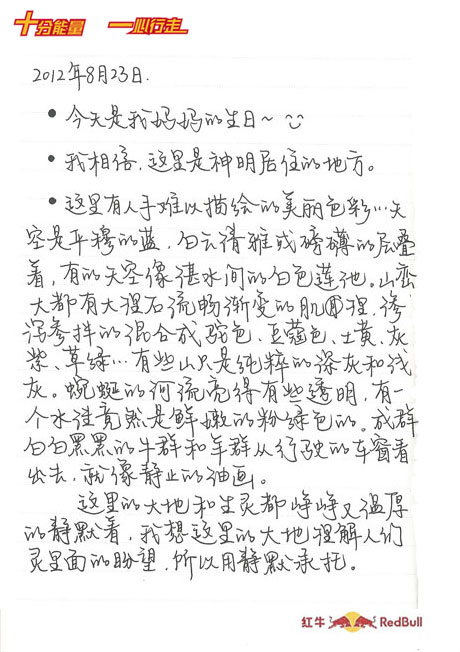 十分能量 一心行走
2012年8月23日.
• 今天是我妈妈的生日~
• 我相信,这里是神明居住的地方。
• 这里有人手难以描绘的美丽色彩…天
空是平穆的蓝,白云清雅或磅礴的层叠
着,有的天空像湛水间的白色莲池。山峦
大都有大理石流畅渐变的肌理,
的混合成驼色、豆蔻色、土黄、灰
紫、草绿…有些山只是纯粹的深灰和浅
灰。蜿蜒的河流亮得有些透明,有一
个水洼竟然是鲜嫩的粉绿色的。成群
白白黑黑的牛群和羊群从行驶的车窗看
出去,就像静止的油画。
这里的大地和生灵都峥峥又温厚
的静默着,我想这里的大地理解人们
灵里面的盼望,所以用静默承托。
红牛 RedBull